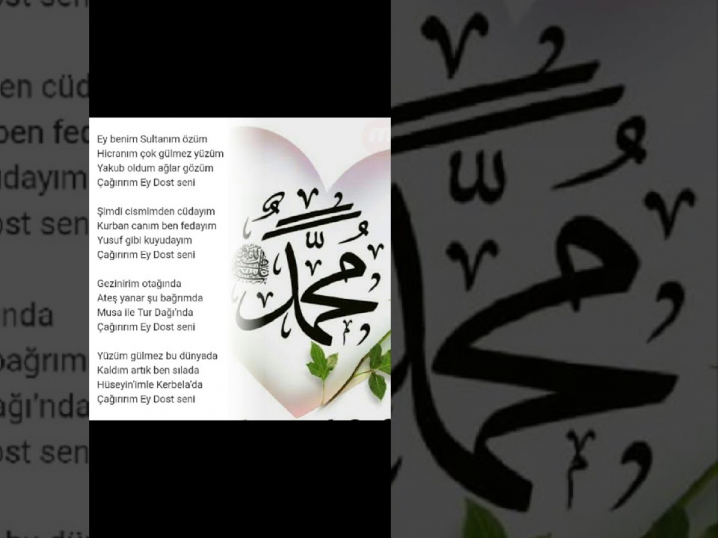 Ey benim Sultanım özüm
Hicranım çok gülmez yüzüm
Yakub oldum ağlar gözüm
Çağırırım Ey Dost seni
Şimdi cismimden cüdayım
Kurban canım ben fedayım
Yusuf gibi kuyudayım
Çağırırım Ey Dost seni
Gezinirim otağında
Ateş yanar şu bağrımda
Musa ile Tur Dağı'nda
Çağırırım Ey Dost seni
Yüzüm gülmez bu dünyada
Kaldım artık ben sılada
Hüseyin'imle Kerbela'da
Çağırırım Ey Dost seni
محمد